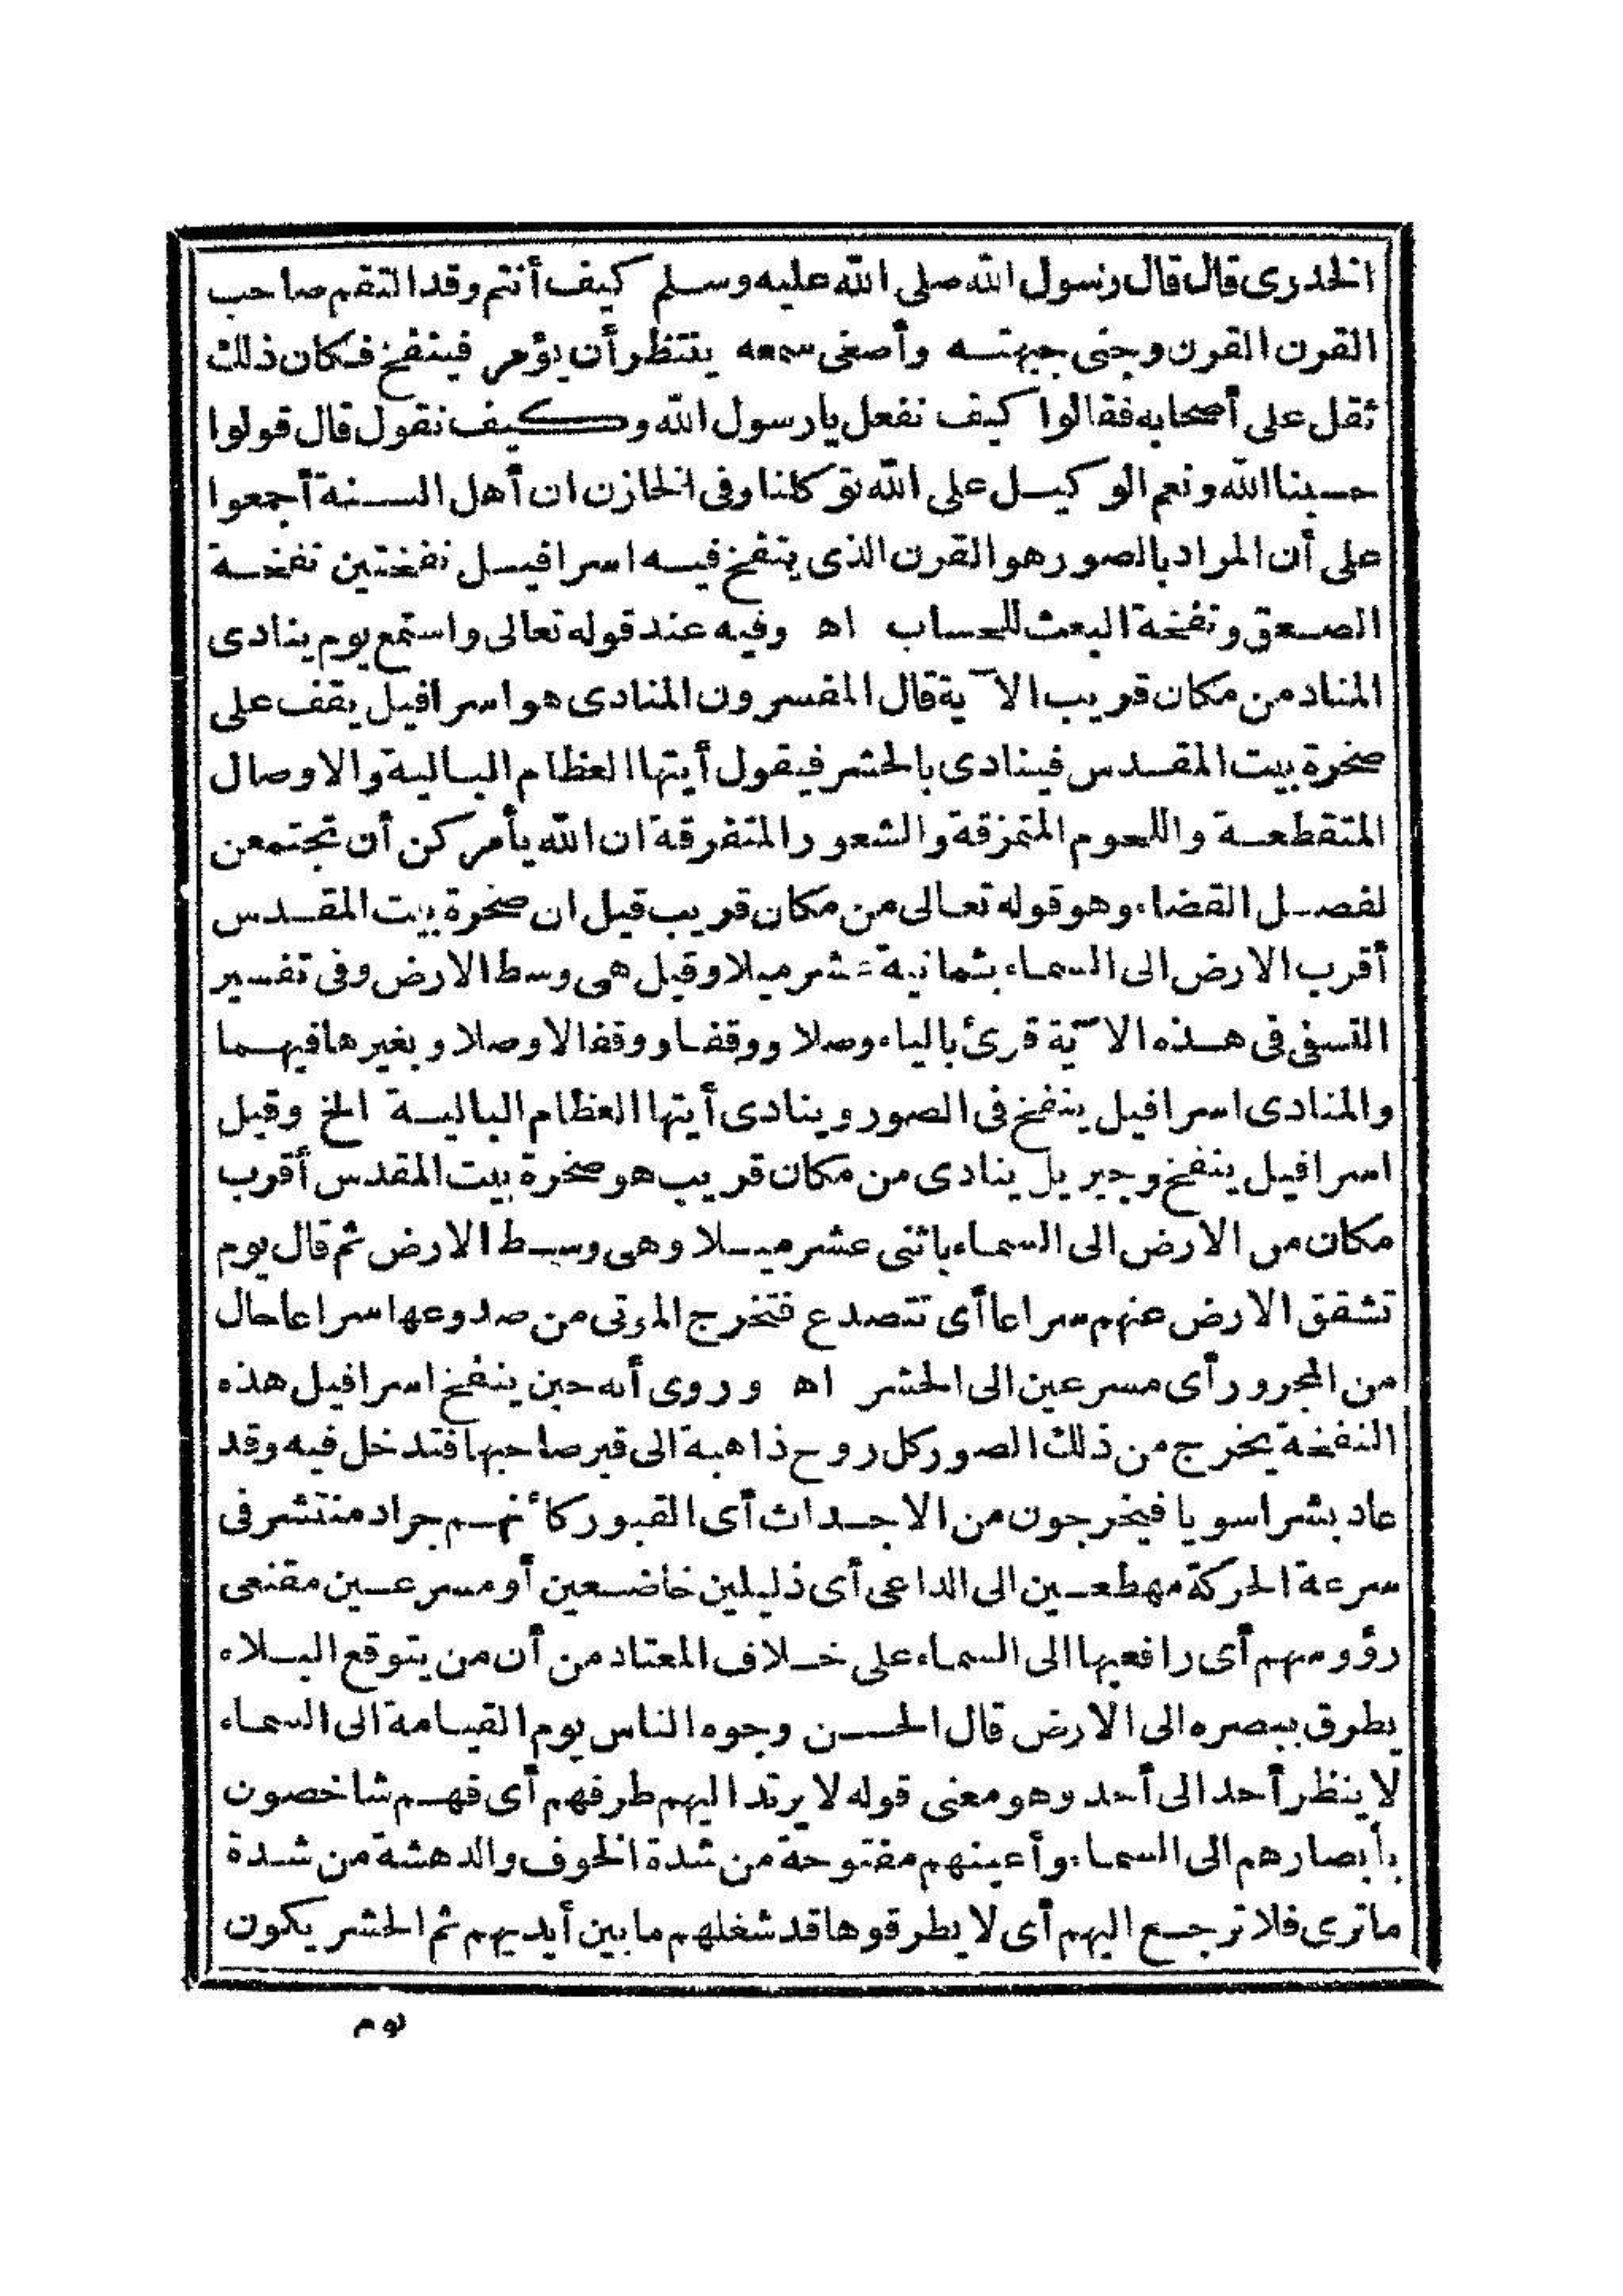 الخدرى قال قال رسول الله صلى الله عليه وسلم كيف أنتم وقد التقم صاحب
القرن القرن وحنى جبهته وأصغى سمعه ينتظر أن يؤمر فينفخ فكان ذلك
ثقل على أصحابه فقالوا كيف نفعل يا رسول الله وكيف نقول قال قولوا
حسبنا الله ونعم الوكيل على الله توكلنا وفى الخازن ان أهل السنة أجمعوا
على أن المراد بالصور هو القرن الذى ينفخ فيه اسرافيل نفختين نفخة
الصعق ونفخة البعث للحساب اه وفيه عند قوله تعالى واستمع يوم ينادى
المناد من مكان قريب الآية قال المفسرون المنادى هو اسرافيل يقف على
صخرة بيت المقدس فينادى بالحشر فيقول أيتها العظام البالية والاوصال
المتقطعة واللحوم المتمزقة والشعور المتفرقة ان الله يأمركن أن تجتمعن
لفصل القضاء وهو قوله تعالى من مكان قريب قيل ان صخرة بيت المقدس
أقرب الارض الى السماء بثمانية عشر ميلا وقيل هى وسط الارض وفى تفسير
النسفى فى هذه الآية قرئ بالياء وصلا ووقفا ووقفا لا وصلا وبغيرها فيهما
والمنادى اسرافيل ينفخ فى الصور وينادى أيتها العظام البالية الخ وقيل
اسرافيل ينفخ وجبريل ينادى من مكان قريب هو صخرة بيت المقدس أقرب
مكان من الارض الى السماء باثنى عشر ميلا وهى وسط الارض ثم قال يوم
تشقق الارض عنهم سراعا أى تتصدع فتخرج الموتى من صدوعها سراعا حال
من المجرور أى مسرعين الى الحشر اه وروى أنه حين ينفخ اسرافيل هذه
النفخة يخرج من ذلك الصور كل روح ذاهبة الى قبر صاحبها فتدخل فيه وقد
عاد بشرا سويا فيخرجون من الاجداث أى القبور كأنهم جراد منتشر فى
سرعة الحركة مهطعين الى الداعى أى ذليلين خاضعين أو مسرعين مقنعى
رؤوسهم أى رافعيها الى السماء على خلاف المعتاد من أن من يتوقع البلاء
يطرق ببصره الى الارض قال الحسن وجوه الناس يوم القيامة الى السماء
لا ينظر أحد الى أحد وهو معنى قوله لا يرتد اليهم طرفهم أى فهم شاخصون
بأبصارهم الى السماء وأعينهم مفتوحة من شدة الخوف والدهشة من شدة
ما ترى فلا ترجع اليهم أى لا يطرقوها قد شغلهم ما بين أيديهم ثم الحشر يكون
يوم